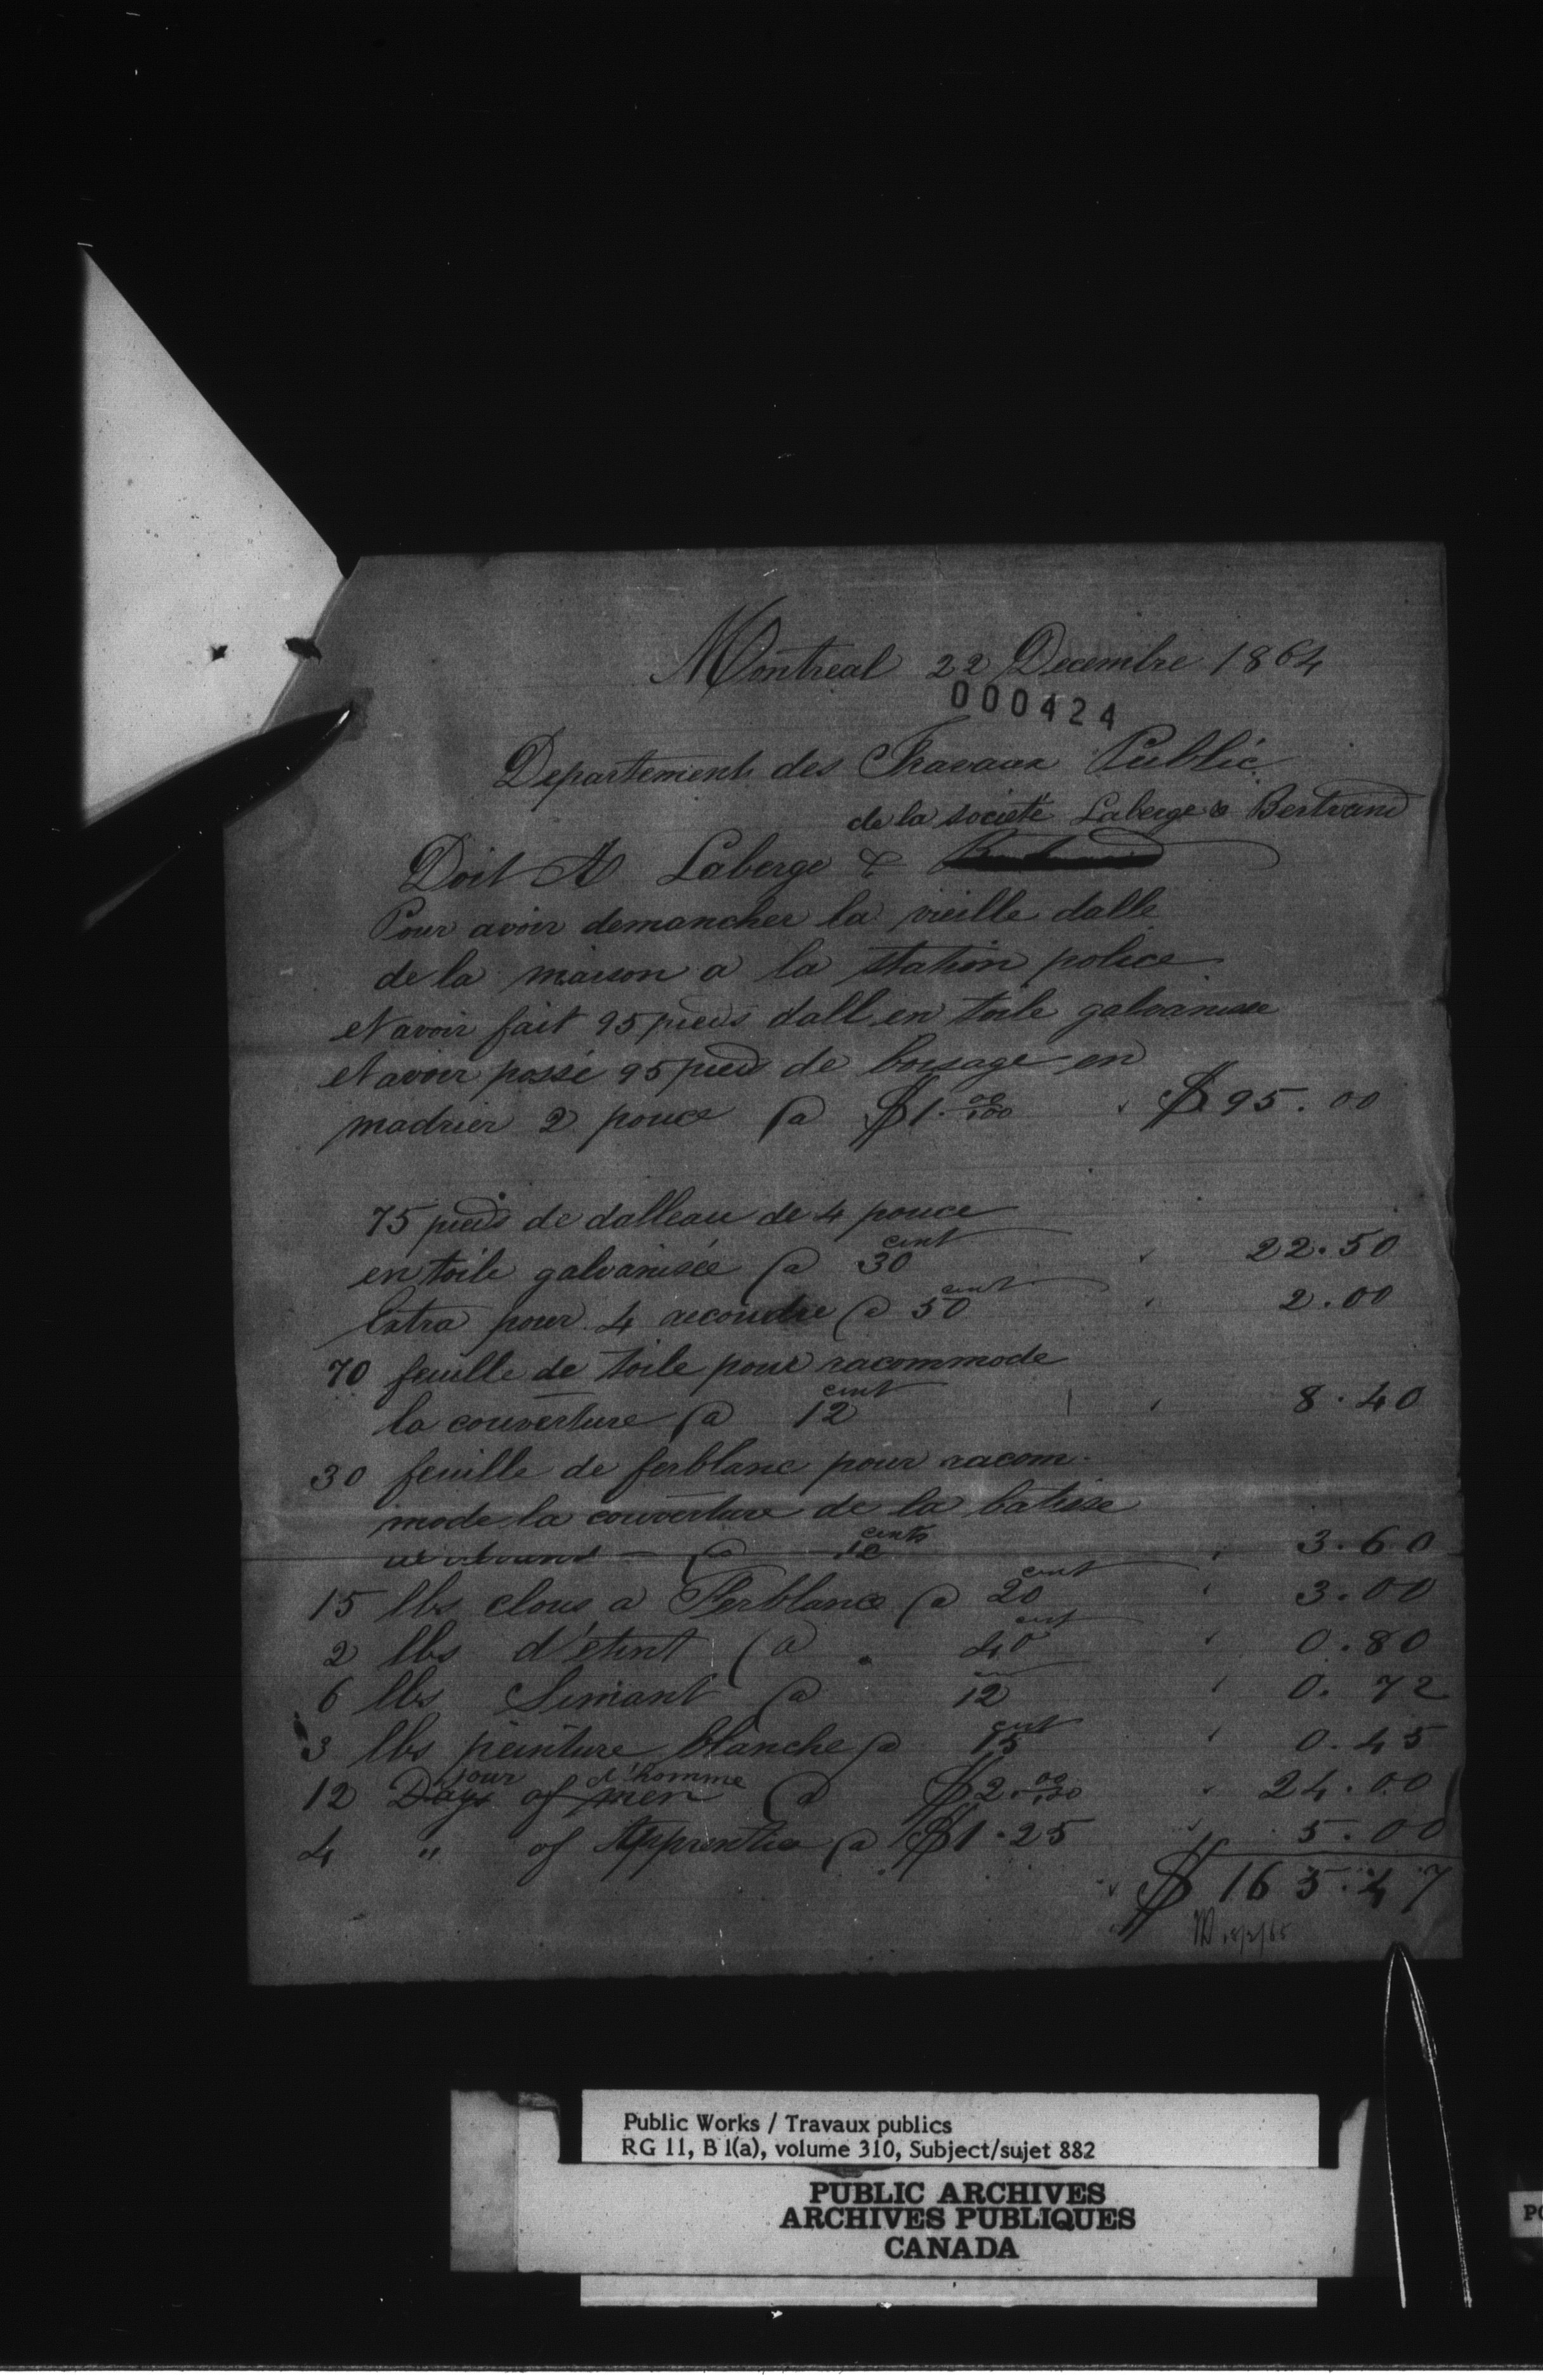 Montreal 22 Decembre 1864
000424
Departement des Travaux Public
de la société Laberge & Bertrand
Doit A Laberge &
Pour avoir demancher la vieille dalle
de la maison a la station police
et avoir fait 95 pieds dall en tole galvanisee
et avoir possé 95 pieds de boisage en
madrier 2 pouce @ $1.00/100 $95.00
75 pieds de dalleau de 4 pouce
en toile galvanisée @ 30 cent 22.50
Extra pour 4 @ 50 cent 2.00
70 feuille de toile pour racommode
la couverture @ 12 cent 8.40
30 feuille de ferblanc pour racom-
mode la couverture de la batisse
@ 12 cents 3.60
15 lbs clous a Ferblanc @ 20 cent 3.00
2 lbs d'étint @ 40 cent 0.80
6 lbs Simant @ 12 0.72
3 lbs peinture blanche @ 15 cent 0.45
12 Days jour of men d'homme @ $2.00/100 24.00
4 " of Apprentice @ $1.25 5.00
$165.47
Public Works / Travaux publics
RG 11, B 1(a), volume 310, Subject/sujet 882
PUBLIC ARCHIVES
ARCHIVES PUBLIQUES
CANADA